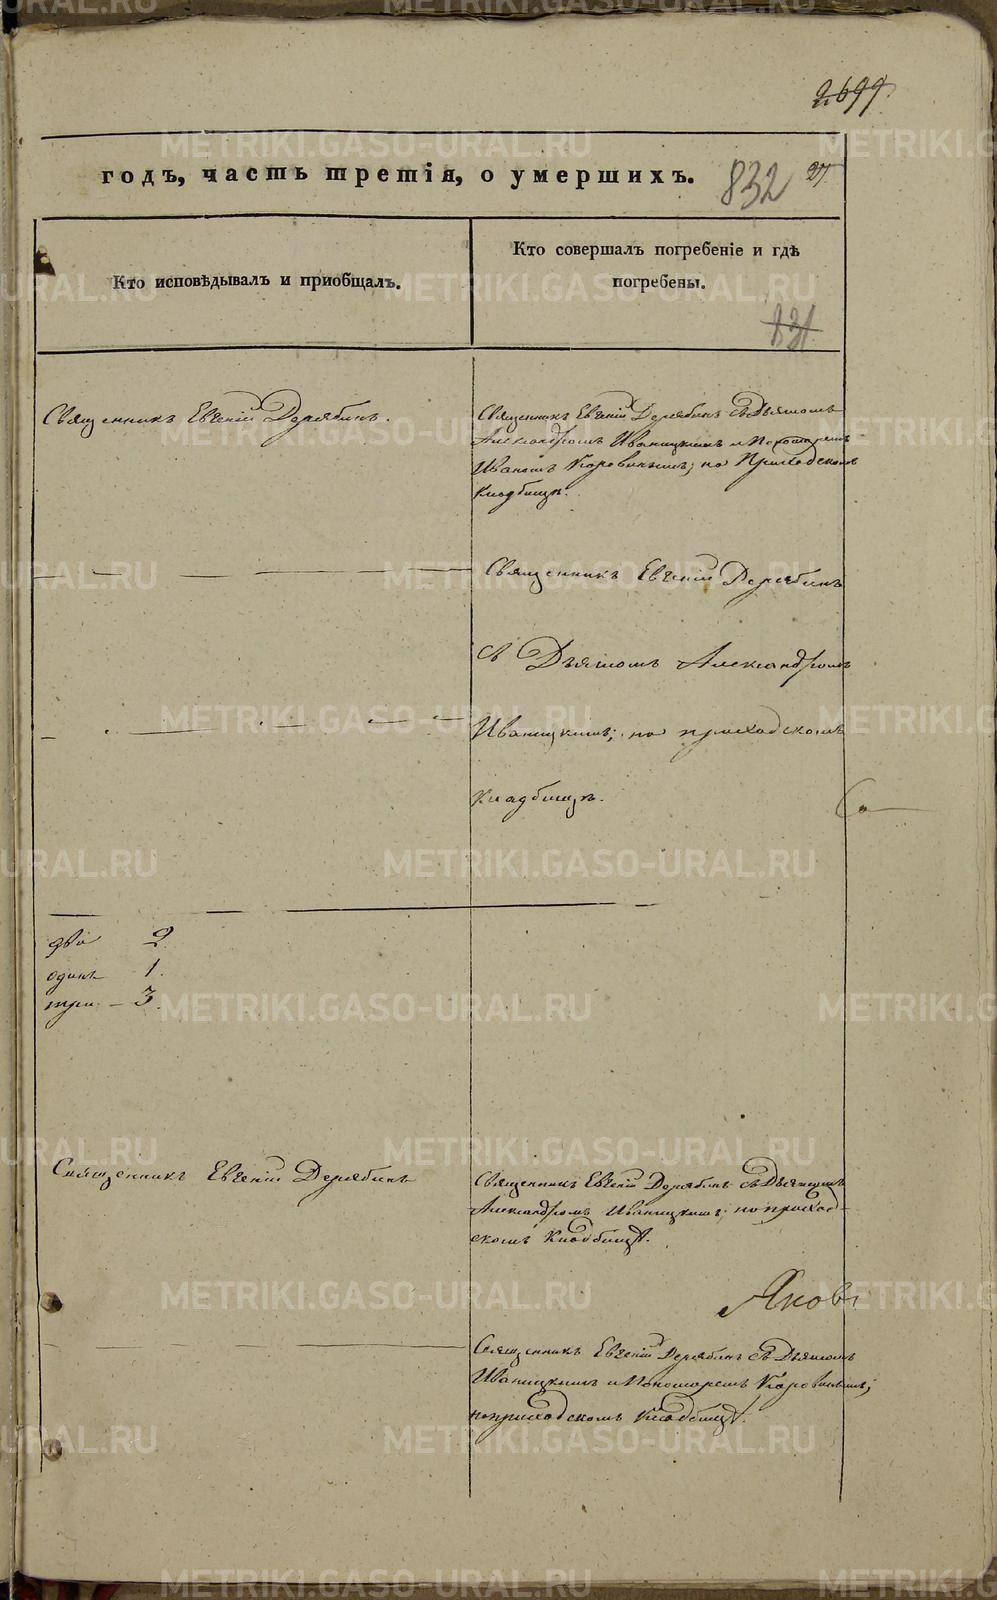 2699.
годъ, часть третія, о умершихъ.
832
27
Кто исповѣдывалъ и приобщалъ.
Кто совершалъ погребеніе и гдѣ
погребены.
831
Священникъ Евгеній Дерябинъ.
Священникъ Евгеній Дерябинъ съ Дьякомъ
Александромъ Иваницкимъ и Пономаремъ
Иваномъ Коровинымъ; на Приходскомъ
Кладбищѣ.
Священникъ Евгеній Дерябинъ
съ Дьякомъ Александромъ
Иваницкимъ; на приходскомъ
кладбищѣ.
два 2.
одинъ 1.
три — 3.
Священникъ Евгеній Дерябинъ
Священникъ Евгеній Дерябинъ съ Дьякомъ
Александромъ Иваницкимъ; на приход-
скомъ Кладбищѣ.
Яковъ
Священникъ Евгеній Дерябинъ съ Дьякомъ
Иваницкимъ и Пономаремъ Коровинымъ;
на приходскомъ Кладбищѣ.
METRIKI.GASO-URAL.RU